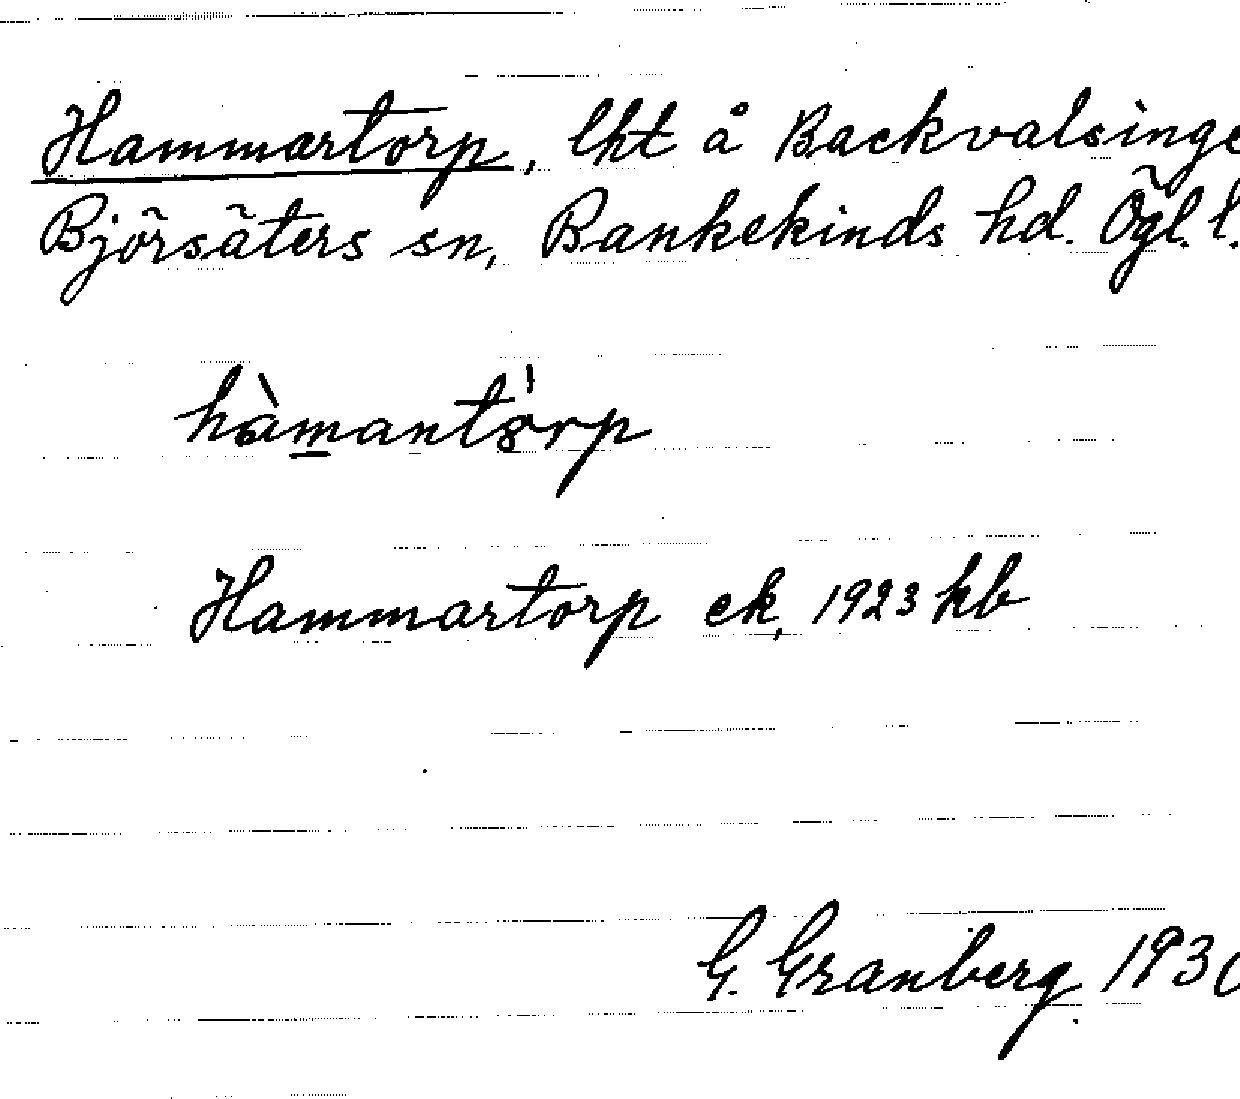 Hammartorp, lht å Backvalsinge
Björsäters sn, Bankekinds hd. Ögl. l.
hàmantó̀rp
Hammartorp ek, 1923 kb
G. Granberg 1930